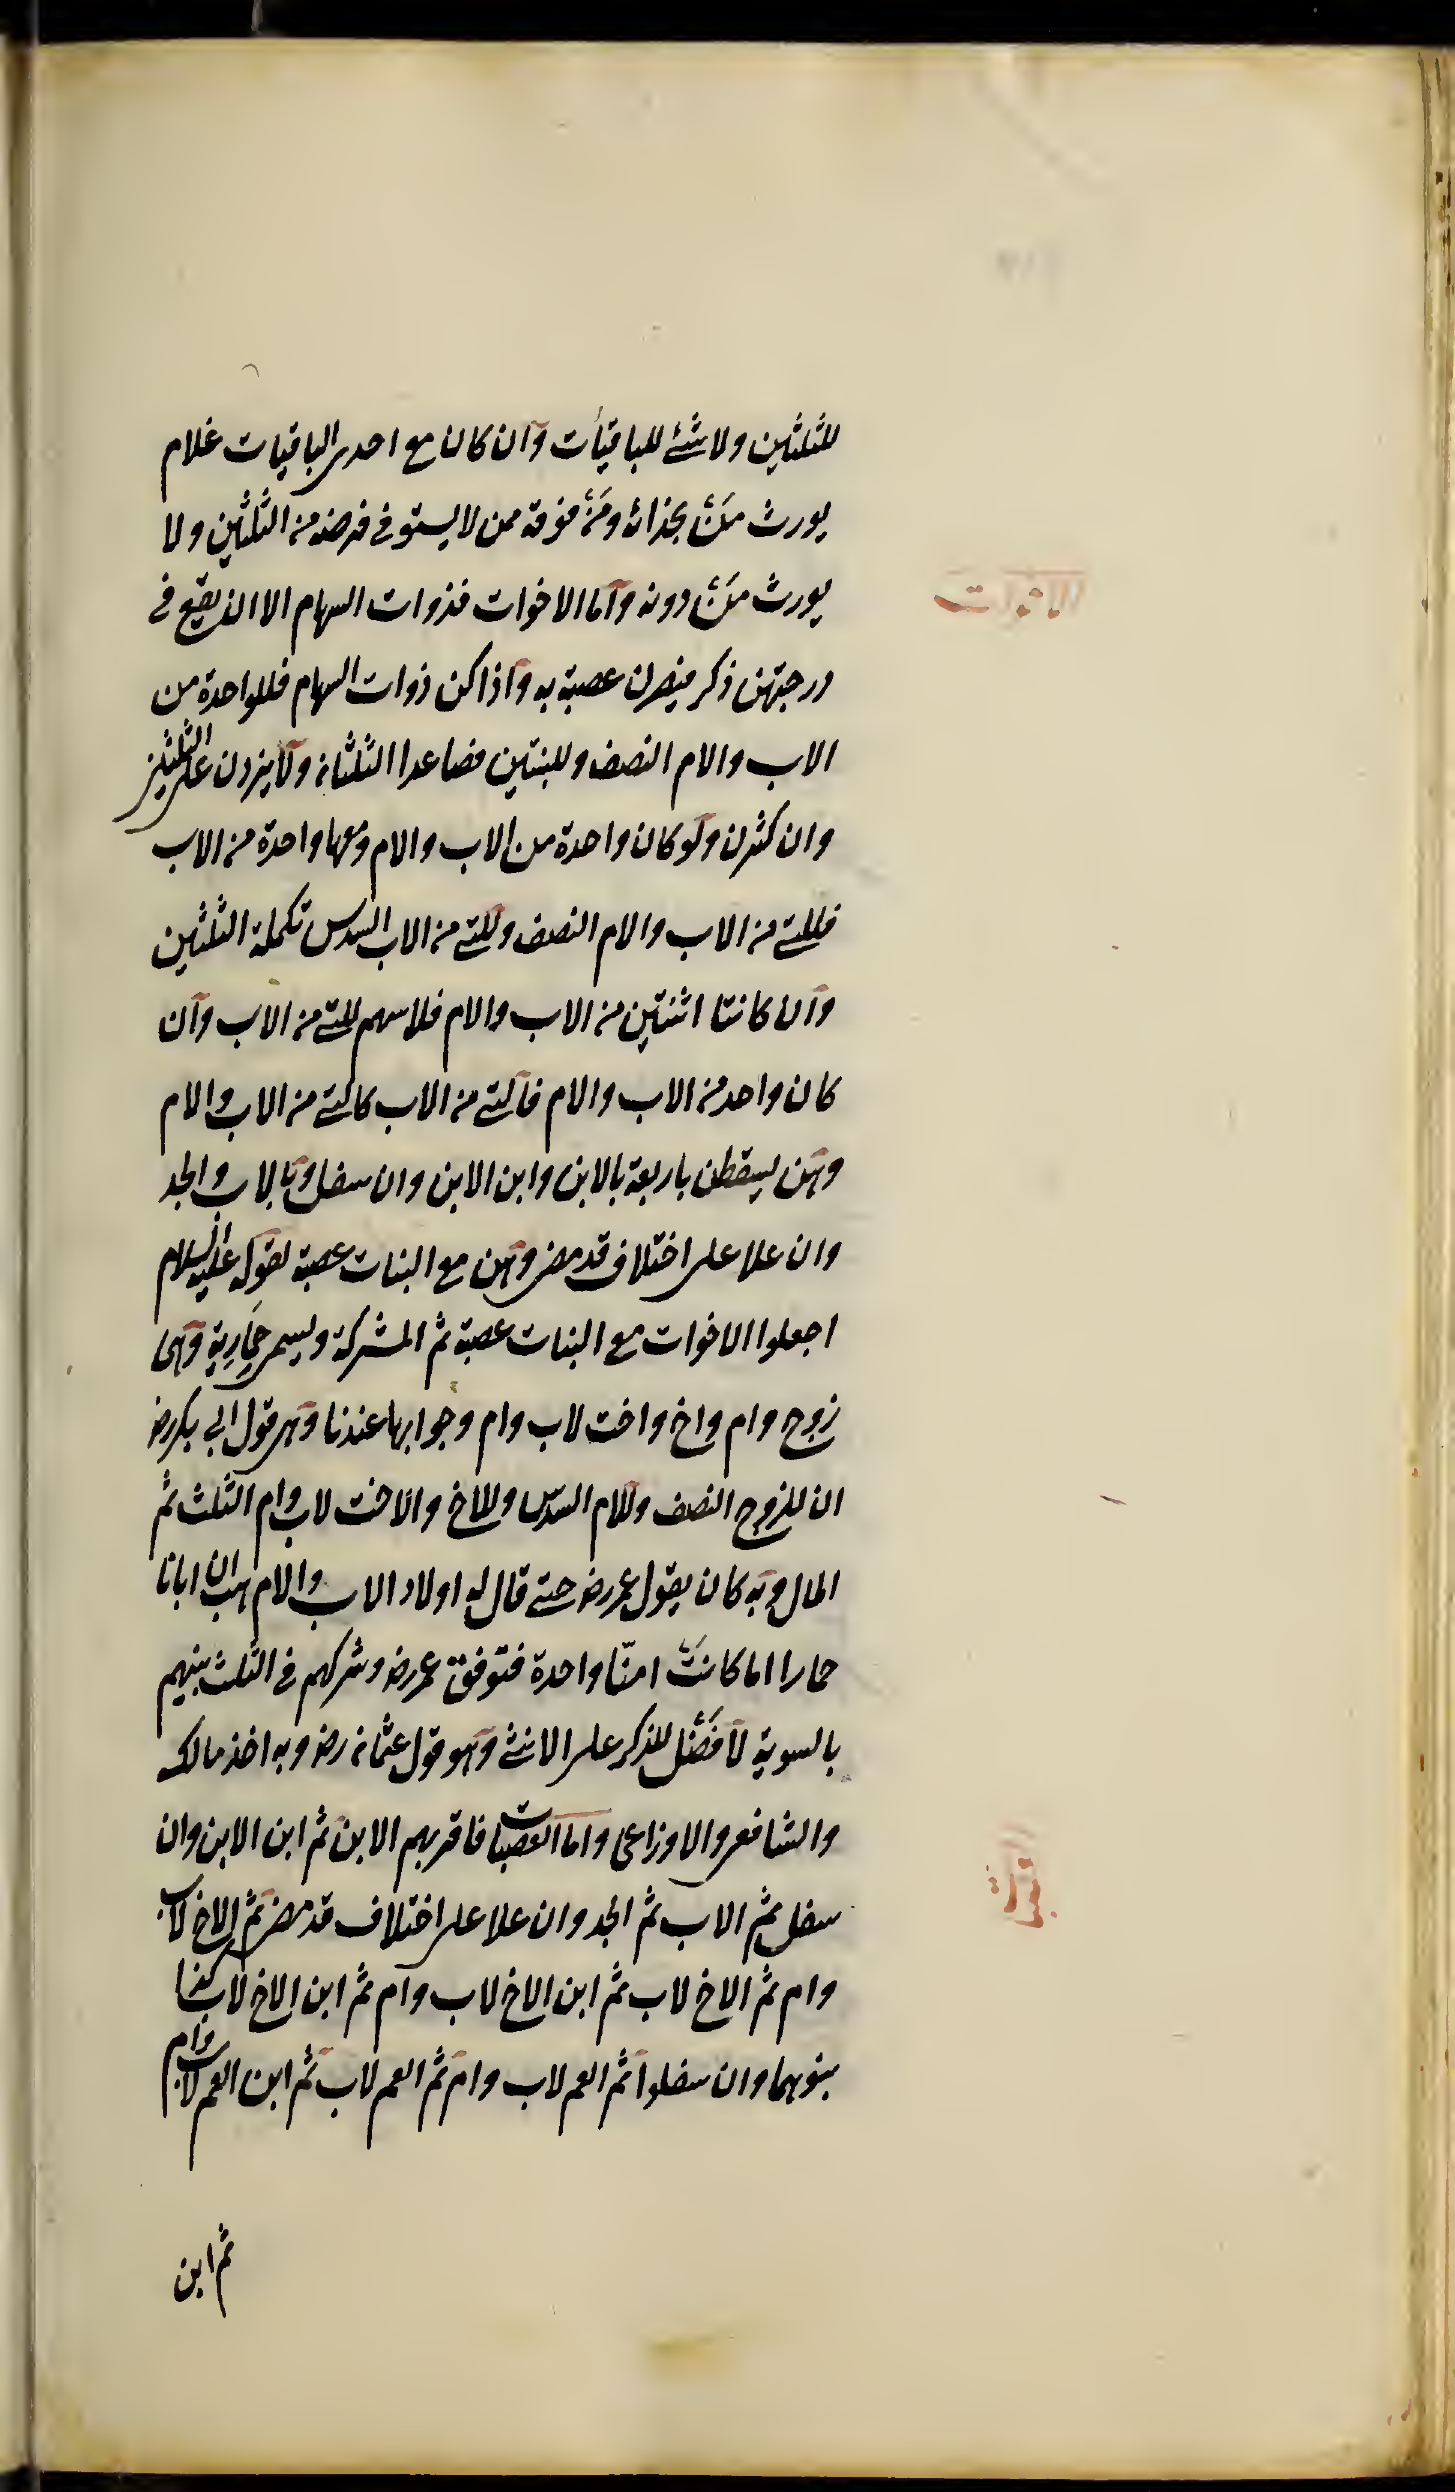 للثلثين ولا شئ للباقيات وان كان مع احدى الباقيات غلام
يورث مَنْ بحذائه ومَنْ فوقه ممن لا يستوفى فرضه من الثلثين ولا
يورث مَنْ دونه واما الاخوات فذوات السهام الا ان يقع فى
الاخوات
درجتهن ذكر فيصرن عصبة به واذا كن ذوات السهام فللواحدة من
الاب والام النصف وللبنتين فصاعدا الثلثان ولا يزدن على الثلثين
وان كثرن ولو كان واحدة من الاب والام ومعها واحدة من الاب
فللتى من الاب والام النصف وللتى من الاب السدس تكملة الثلثين
وان كانتا اثنتين من الاب والام فلا سهم للتى من الاب وان
كان واحد من الاب والام فالتى من الاب كالتى من الاب والام
وهن يسقطن باربعة بالابن وابن الابن وان سفل وبالاب والجد
وان علا على اختلاف قد مضى وهن مع البنات عصبة لقوله عليه السلام
اجعلوا الاخوات مع البنات عصبة ثم المشركة ويسمى حِمَارِية وهى
زوج وام واخ واخت لاب وام وجوابها عندنا وهى قول ابى بكر رض
ان للزوج النصف وللام السدس وللاخ والاخت لاب وام الثلث ثم
المال وبه كان يقول عمر رض حتى قال له اولاد الاب والام هب ان ابانا
حمارا اما كانَتْ امنّا واحدة فتوفق عمر رض وشركهم فى الثلث بينهم
بالسوية لا فَضْل للذكر على الانثى وهو قول عثمان رض وبه اخذ مالك
والشافعى والاوزاعى واما العصبات فاقربهم الابن ثم ابن الابن وان
سفل ثم الاب ثم الجد وان علا على اختلاف قد مضى ثم الاخ لاب
وام ثم الاخ لاب ثم ابن الاخ لاب وام ثم ابن الاخ لاب وكذا
بنوهما وان سفلوا ثم العم لاب وام ثم العم لاب ثم ابن العم لاب وام
ثم ابن